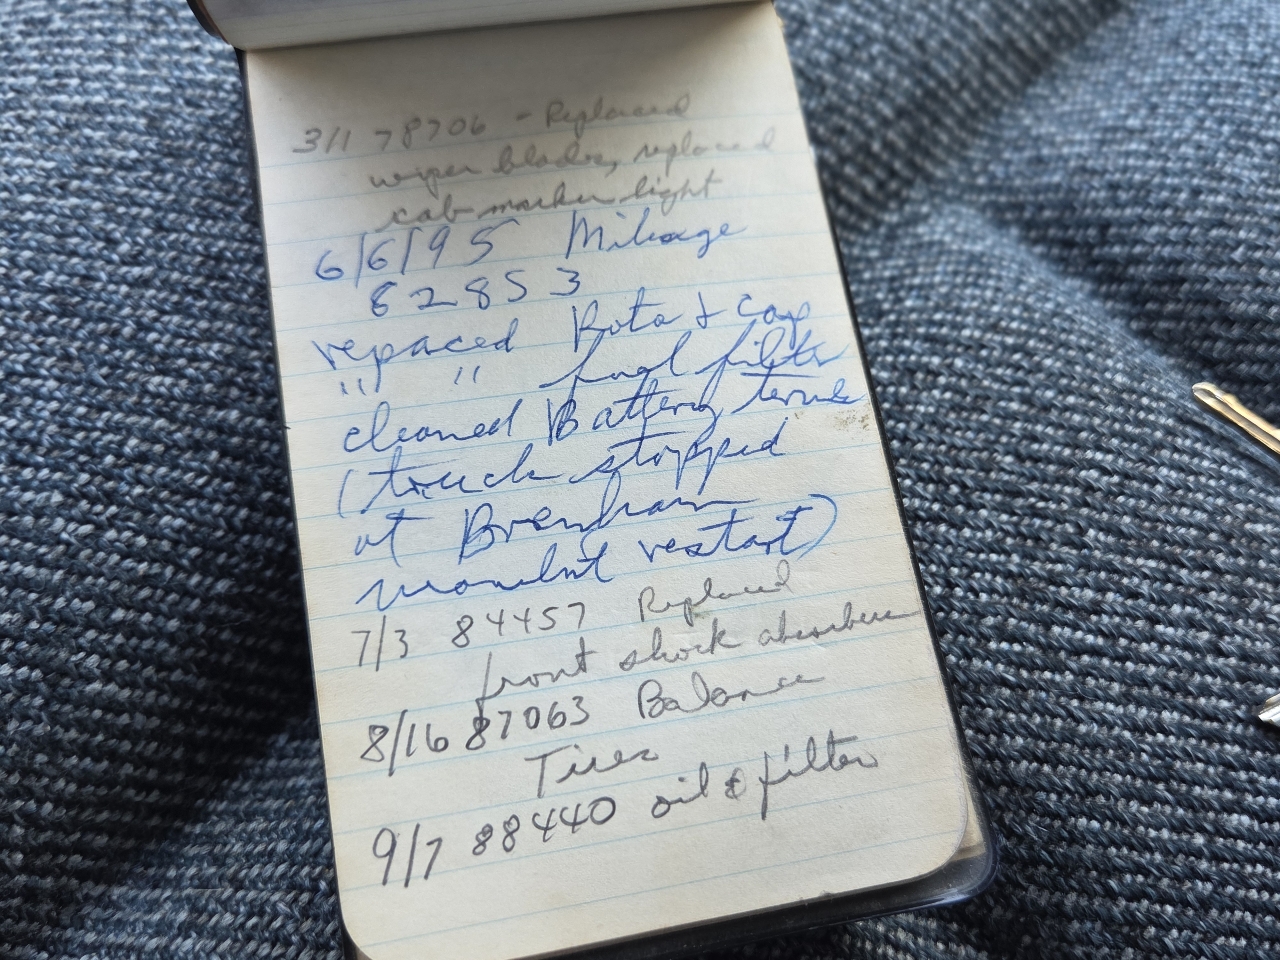 3/1 78706 - Replaced
wiper blades, replaced
cab marker light
6/6/95 Mileage
82853
repaced Roto & cap
" " fuel filter
cleaned Battery term
(truck stopped
at Brenham
wouldnt restart)
7/3 84457 Replaced
front shock absorbers
8/16 87063 Balance
Tires
9/7 88440 oil & filter